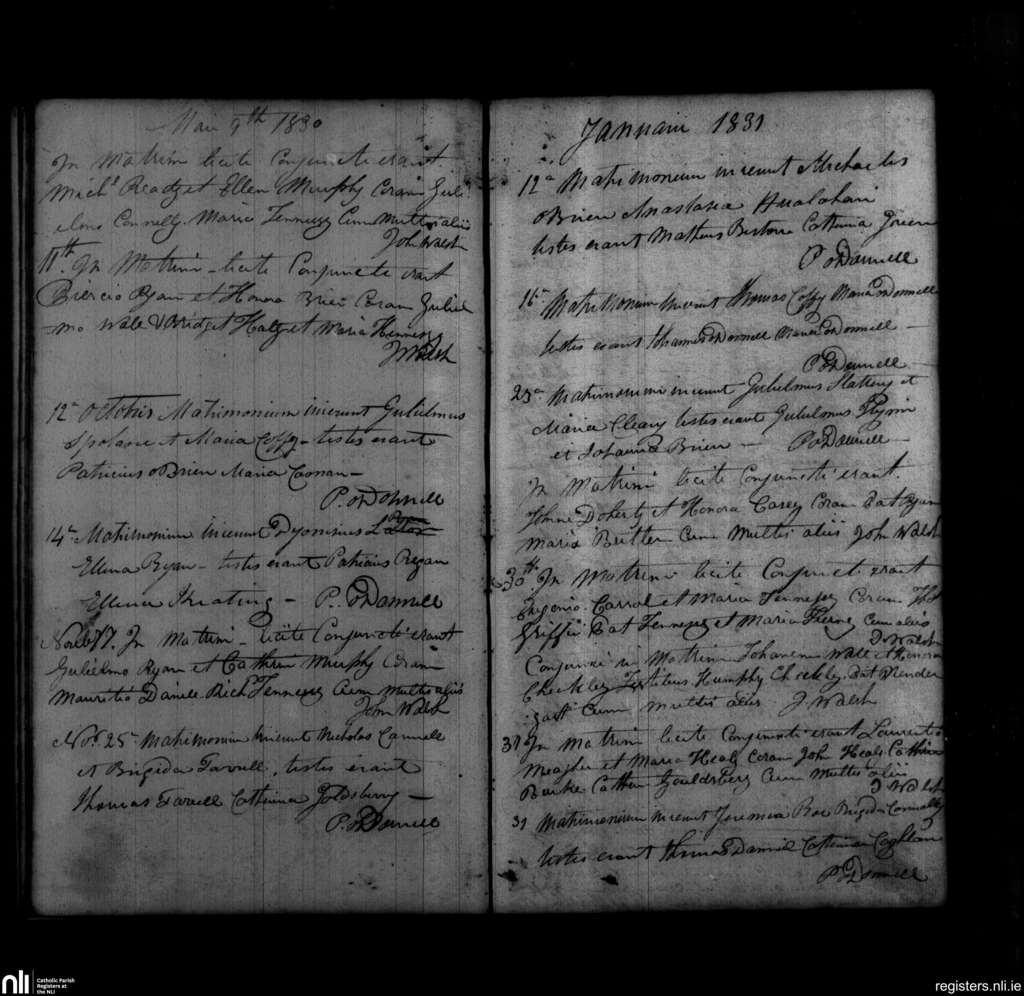 Maii 9th 1830
In Matrim licite Conjuncti erant.
Michl Ready et Ellen Murphy Coram Guli
elmo Connelly. Maria Fennessy Cum Multis aliis
John Walsh
11th. In Matrim - licite Conjuncte erant
Piercio Ryan et Honora Brien Coram Guliel
mo Wale & Bridget Halyet Maria Hennessy
J Walsh
12a Octobris Matrimonium inierunt Gulielmus
et Maria Coffy - testes erant
Patricius OBrien Maria Coonan -
P. ODonnell
14a Matrimonium inierunt Dyonisius
Ellena Ryan - testes erant Patricius Regan
Ellena Keating - P. ODonnell
17. In Matrim - licite Conjuncti erant
Gulielmo Ryan et Cathrin Murphy Coram
Mauritio Daniel. Rich Fennessy Cum Multis aliis
John Walsh
25 - Matrimonium inierunt Nicholas Cannell
et Brigida Farrell, testes erant
Thomas Farrell Catherina Goldsberry -
P. ODonnell
Januarii 1831
12a Matrimonium inierunt Michaelis
OBrien Anastasia
testes erant Matheus Catherina Green
P ODonnell
16a Matrimonium inierunt Thomas Coffy Maria ODonnell
testes erant Johannes ODonnell Maria ODonnell -
P ODonnell
25a Matrimonium inierunt Gulielmus Slattery et
Maria Cleary testes erant Gulielmus Glynn
et Johanna Brien - P ODonnell -
In Matrim licite Conjuncti erant.
Johne Doherty et Honora Casey Coram Pat Ryan
Maria Butler Cum Multis aliis John Walsh
30th. In Matrim licite Conjuncti erant
Eugenio Carrol et Maria Fennessy Coram
Griffin Pat Fennessy et Maria Cum aliis
J. Walsh
Conjunxi in Matrim Johanem Wall et Honora
Cheekley Testibus Humphy Cheekley. Pat Prender
gast Cum multis aliis J. Walsh
31 In Matrim licite Conjuncti erant Laurentio
Meagher et Maria Healy Coram John Healy Cathrin
Burke Cathrin Gouldsbery Cum Multis aliis
J Walsh
31 Matrimonium inierunt Jeremia Roe Brigida Connolly
testes erant Thomas Daniel Catherina Coghlan
P ODonnell
nli
Catholic Parish
Registers at
the NLI
registers.nli.ie